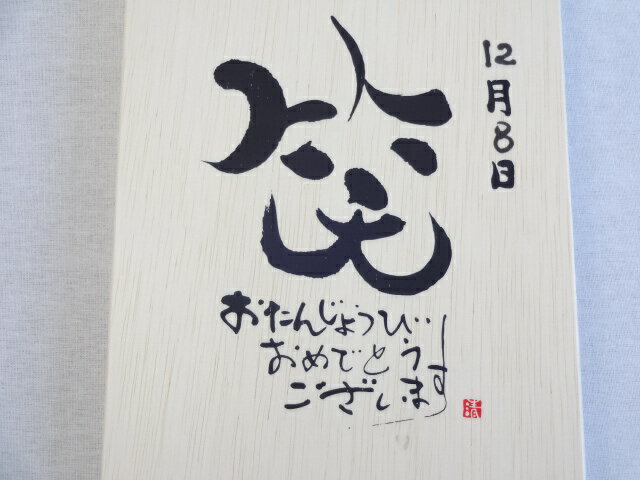 12月8日
笑
おたんじょうび
おめでとう
ございます